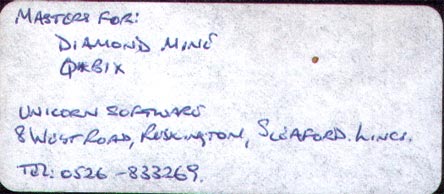 MASTERS FOR:
DIAMOND MINE
Q*BIX
UNICORN SOFTWARE
8 WEST ROAD, RUSKINGTON, SLEAFORD. LINCS.
TEL: 0526-833269.